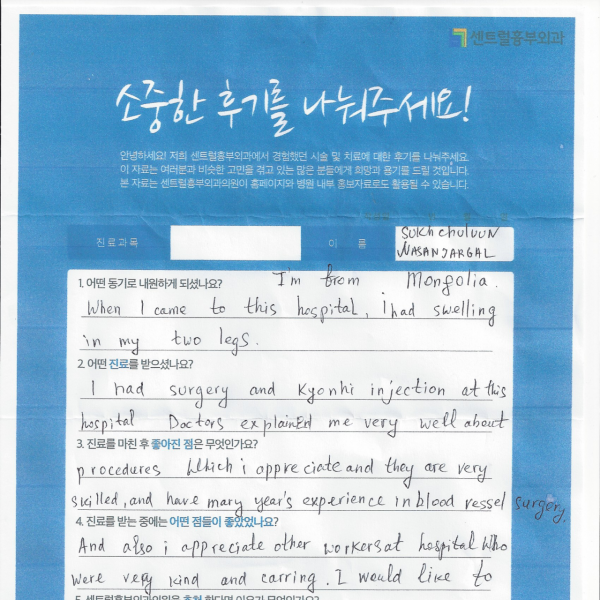 센트럴흉부외과
소중한 후기를 나눠주세요!
안녕하세요! 저희 센트럴흉부외과에서 경험했던 시술 및 치료에 대한 후기를 나눠주세요.
이 자료는 여러분과 비슷한 고민을 겪고 있는 많은 분들에게 희망과 용기를 드릴 것입니다.
본 자료는 센트럴흉부외과의원이 홈페이지와 병원 내부 홍보자료로도 활용될 수 있습니다.
진료과목 이 름 SUKHCHULUUN
NASANJARGAL
1. 어떤 동기로 내원하게 되셨나요? I'm from Mongolia.
When I came to this hospital, i had swelling
in my two legs.
2. 어떤 진료를 받으셨나요?
I had surgery and Kyonhi injection at this
hospital Doctors explainEd me very well about
3. 진료를 마친 후 좋아진 점은 무엇인가요?
procedures Which i appreciate and they are very
skilled, and have many year's experience in blood vessel surgery.
4. 진료를 받는 중에는 어떤 점들이 좋았었나요?
And also i appreciate other workers at hospital Who
were very kind and carring. I would like to
5. 센트럴흉부외과의원을 추천 한다면 이유가 무엇인가요?